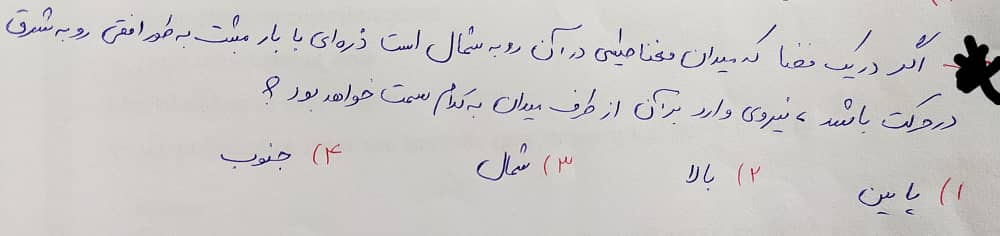 اگر در یک فضا که میدان مغناطیسی در آن رو به شمال است ذره‌ای با بار مثبت به طور افقی رو به شرق
در حرکت باشد ، نیروی وارد بر آن از طرف میدان به کدام سمت خواهد بود ؟
۱) پایین ۲) بالا ۳) شمال ۴) جنوب